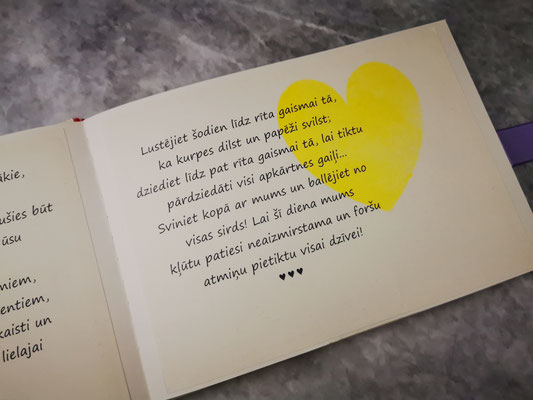 ākie,
ušies būt
ūsu
niem,
entiem,
kaisti un
lielajai
Lustējiet šodien līdz rīta gaismai tā,
ka kurpes dilst un papēži svilst;
dziediet līdz pat rīta gaismai tā, lai tiktu
pārdziedāti visi apkārtnes gaiļi...
Sviniet kopā ar mums un ballējiet no
visas sirds! Lai šī diena mums
kļūtu patiesi neaizmirstama un foršu
atmiņu pietiktu visai dzīvei!
♥♥♥